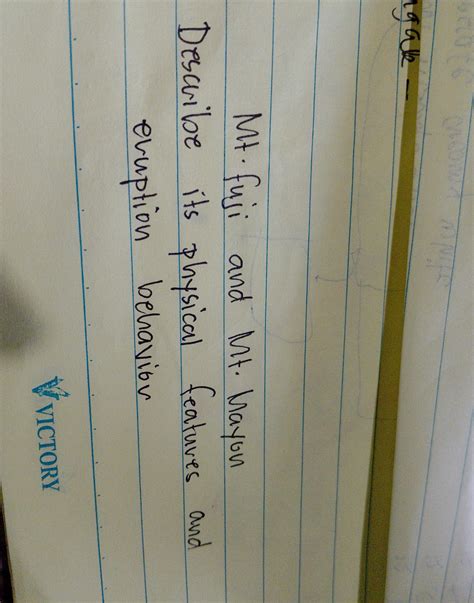 Mt. fuji and Mt. Mayon
Describe its physical features and
eruption behavior
VICTORY